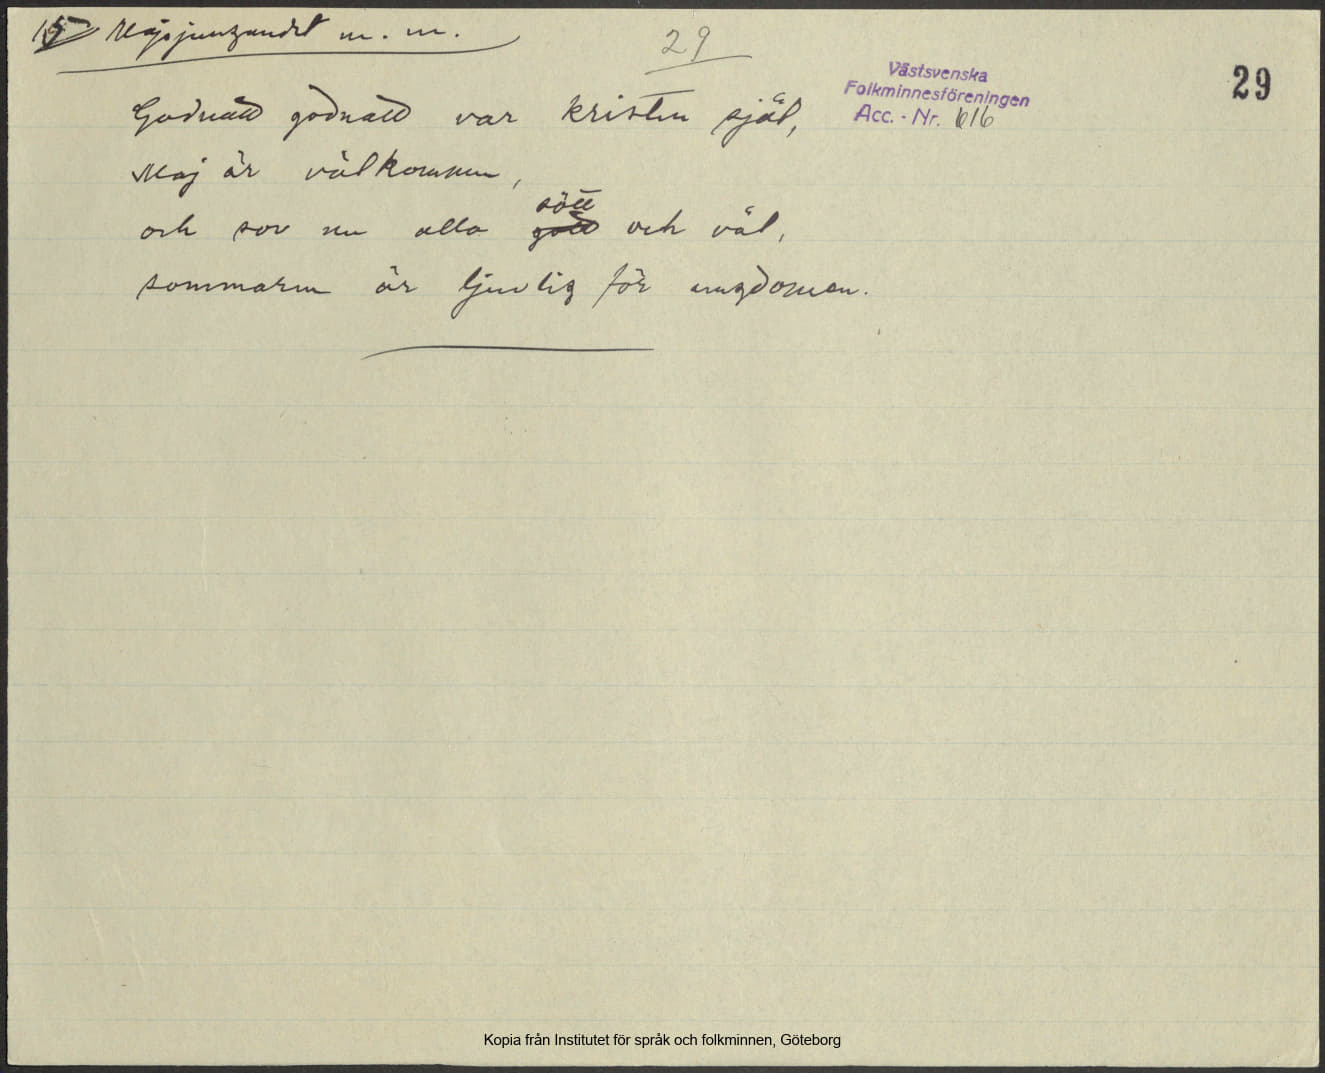 15 Majsjungandet m. m.
29
29
Västsvenska
Folkminnesföreningen
Acc. - Nr. 616
Godnatt godnatt var kristen själ,
Maj är välkommen,
sött
och sov nu alla gott och väl,
sommaren är ljuvlig för ungdomen.
Kopia från Institutet för språk och folkminnen, Göteborg